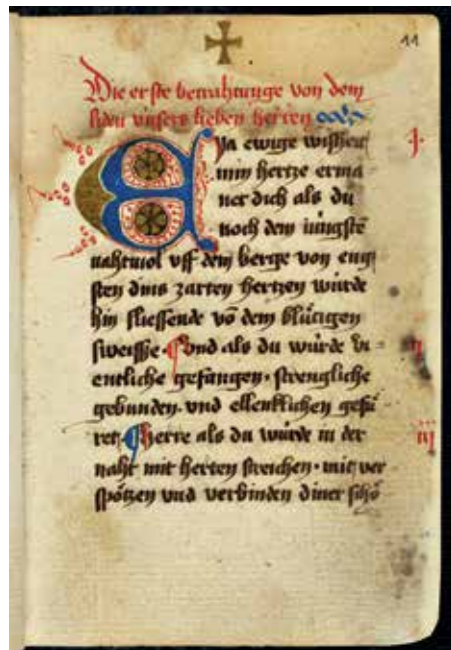 11
Die erste betrahtunge von dem
liden unsers lieben herren
Eya ewige wisheit
min hertze erma
net dich als du
noch dem iungstē
nahtmol vff dem berge von eng
sten dins zarten hertzen wurde
hin fliessende vō dem blůtigen
sweisse · Vnd als du wurde vi=
entliche gefangen · strengliche
gebunden · vnd ellentklichen gefů
ret · Herre als du wurde in der
naht mit herten streichen · mit ver
spötzen vnd verbinden diner schö
j
ij
iij